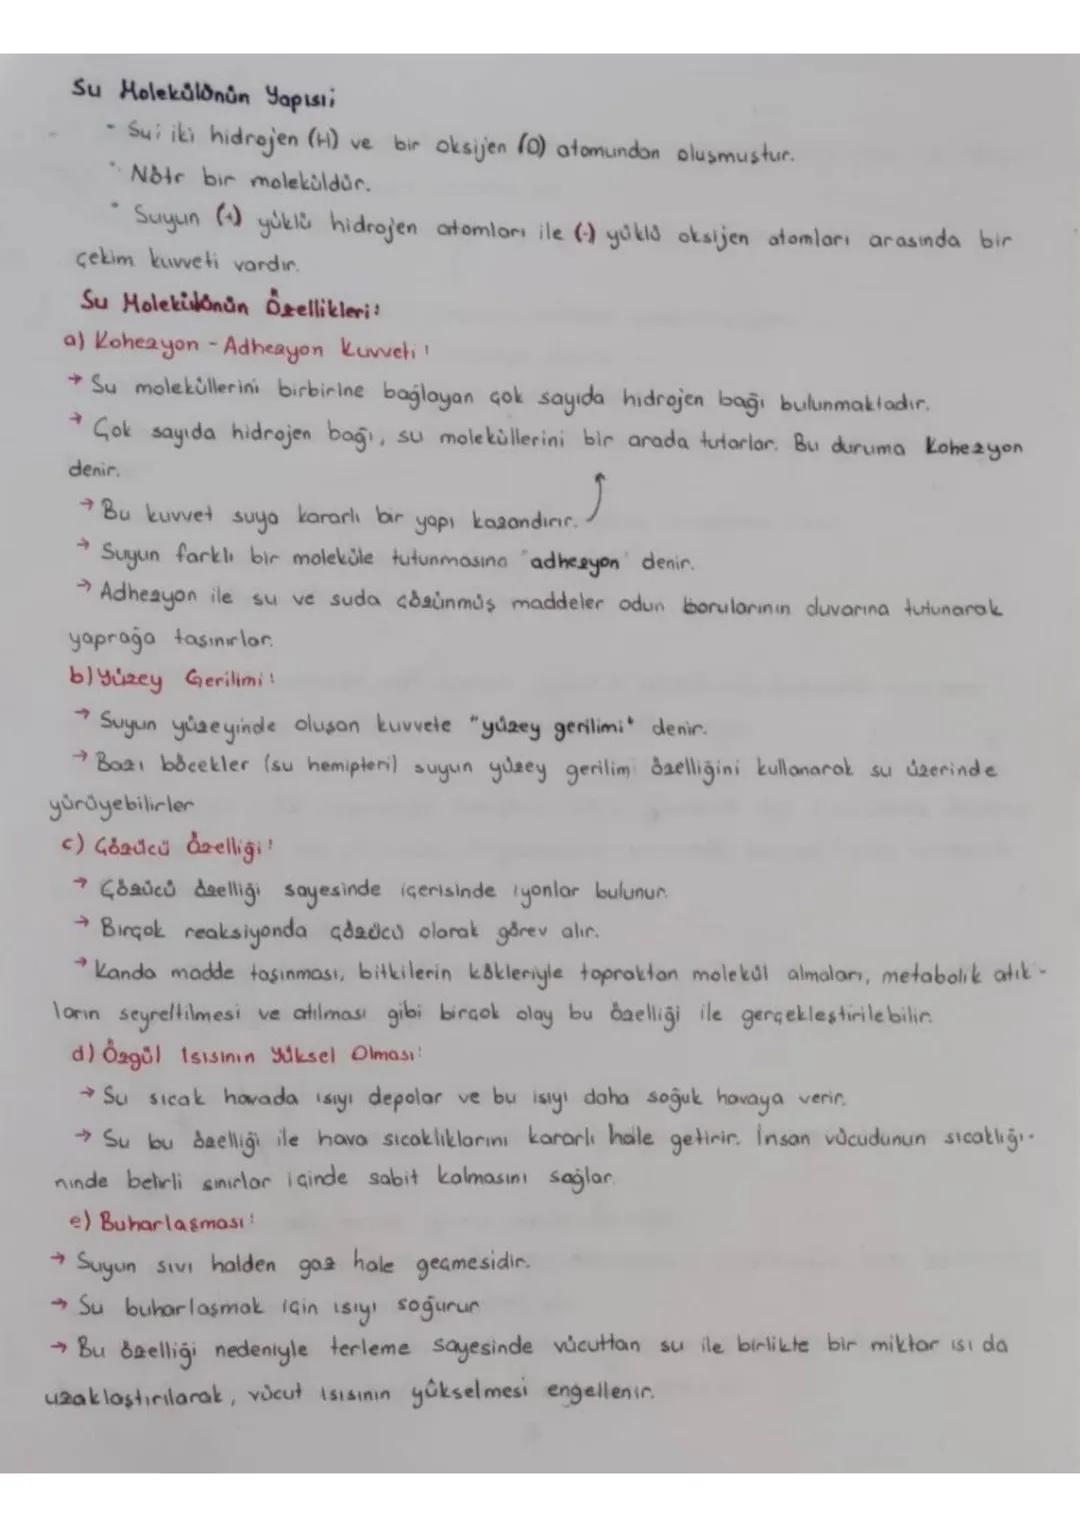 Su Molekülünün Yapısı;
- Su; iki hidrojen (H) ve bir oksijen (O) atomundan oluşmuştur.
• Nötr bir moleküldür.
• Suyun (+) yüklü hidrojen atomları ile (-) yüklü oksijen atomları arasında bir
çekim kuvveti vardır.
Su Molekülünün Özellikleri:
a) Kohezyon - Adhezyon Kuvveti:
→ Su moleküllerini birbirine bağlayan çok sayıda hidrojen bağı bulunmaktadır.
→ Çok sayıda hidrojen bağı, su moleküllerini bir arada tutarlar. Bu duruma kohezyon
denir.
→ Bu kuvvet suya kararlı bir yapı kazandırır.
→ Suyun farklı bir moleküle tutunmasına "adhezyon" denir.
→ Adhezyon ile su ve suda çözünmüş maddeler odun borularının duvarına tutunarak
yaprağa taşınırlar.
b) Yüzey Gerilimi:
→ Suyun yüzeyinde oluşan kuvvete "yüzey gerilimi" denir.
→ Bazı böcekler (su hemipteri) suyun yüzey gerilim özelliğini kullanarak su üzerinde
yürüyebilirler
c) Çözücü Özelliği:
→ Çözücü özelliği sayesinde içerisinde iyonlar bulunur.
→ Birçok reaksiyonda çözücü olarak görev alır.
→ Kanda madde taşınması, bitkilerin kökleriyle topraktan molekül almaları, metabolik atık-
ların seyreltilmesi ve atılması gibi birçok olay bu özelliği ile gerçekleştirilebilir.
d) Özgül Isısının Yüksel Olması:
→ Su sıcak havada ısıyı depolar ve bu ısıyı daha soğuk havaya verir.
→ Su bu özelliği ile hava sıcaklıklarını kararlı hale getirir. İnsan vücudunun sıcaklığı-
nında belirli sınırlar içinde sabit kalmasını sağlar.
e) Buharlaşması:
→ Suyun sıvı halden gaz hale geçmesidir.
→ Su buharlaşmak için ısıyı soğurur
→ Bu özelliği nedeniyle terleme sayesinde vücuttan su ile birlikte bir miktar ısı da
uzaklaştırılarak, vücut ısısının yükselmesi engellenir.